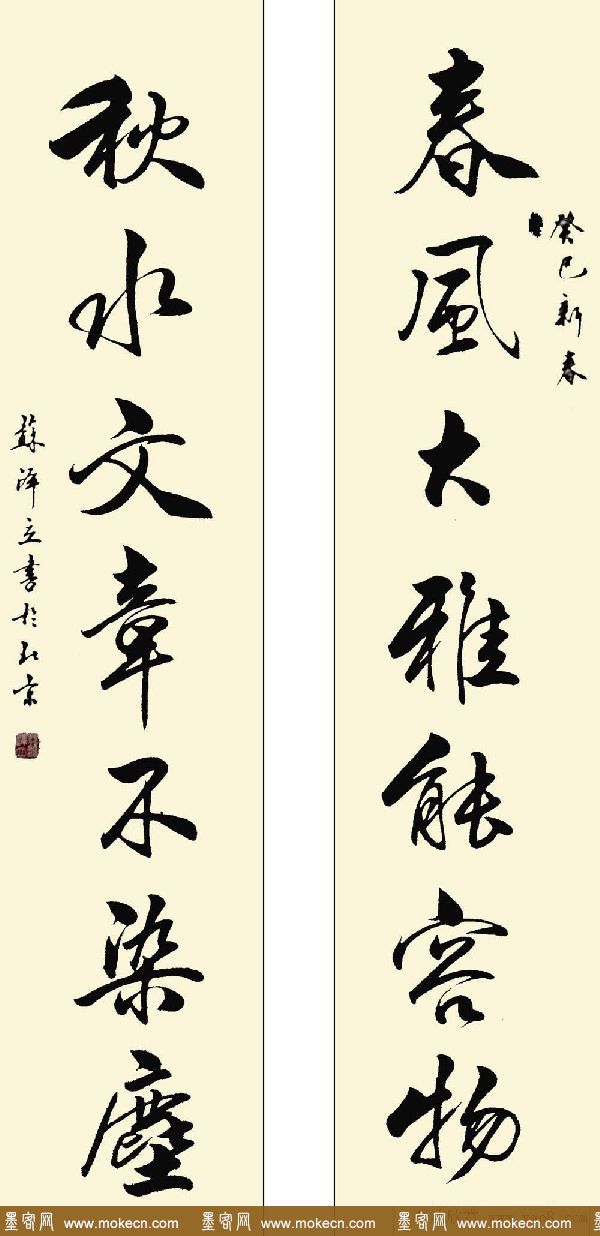 春風大雅能容物
癸巳新春
秋水文章不染塵
蘇澤立書於北京
墨客网 www.mokecn.com 墨客网 www.mokecn.com 墨客网 www.mokecn.com